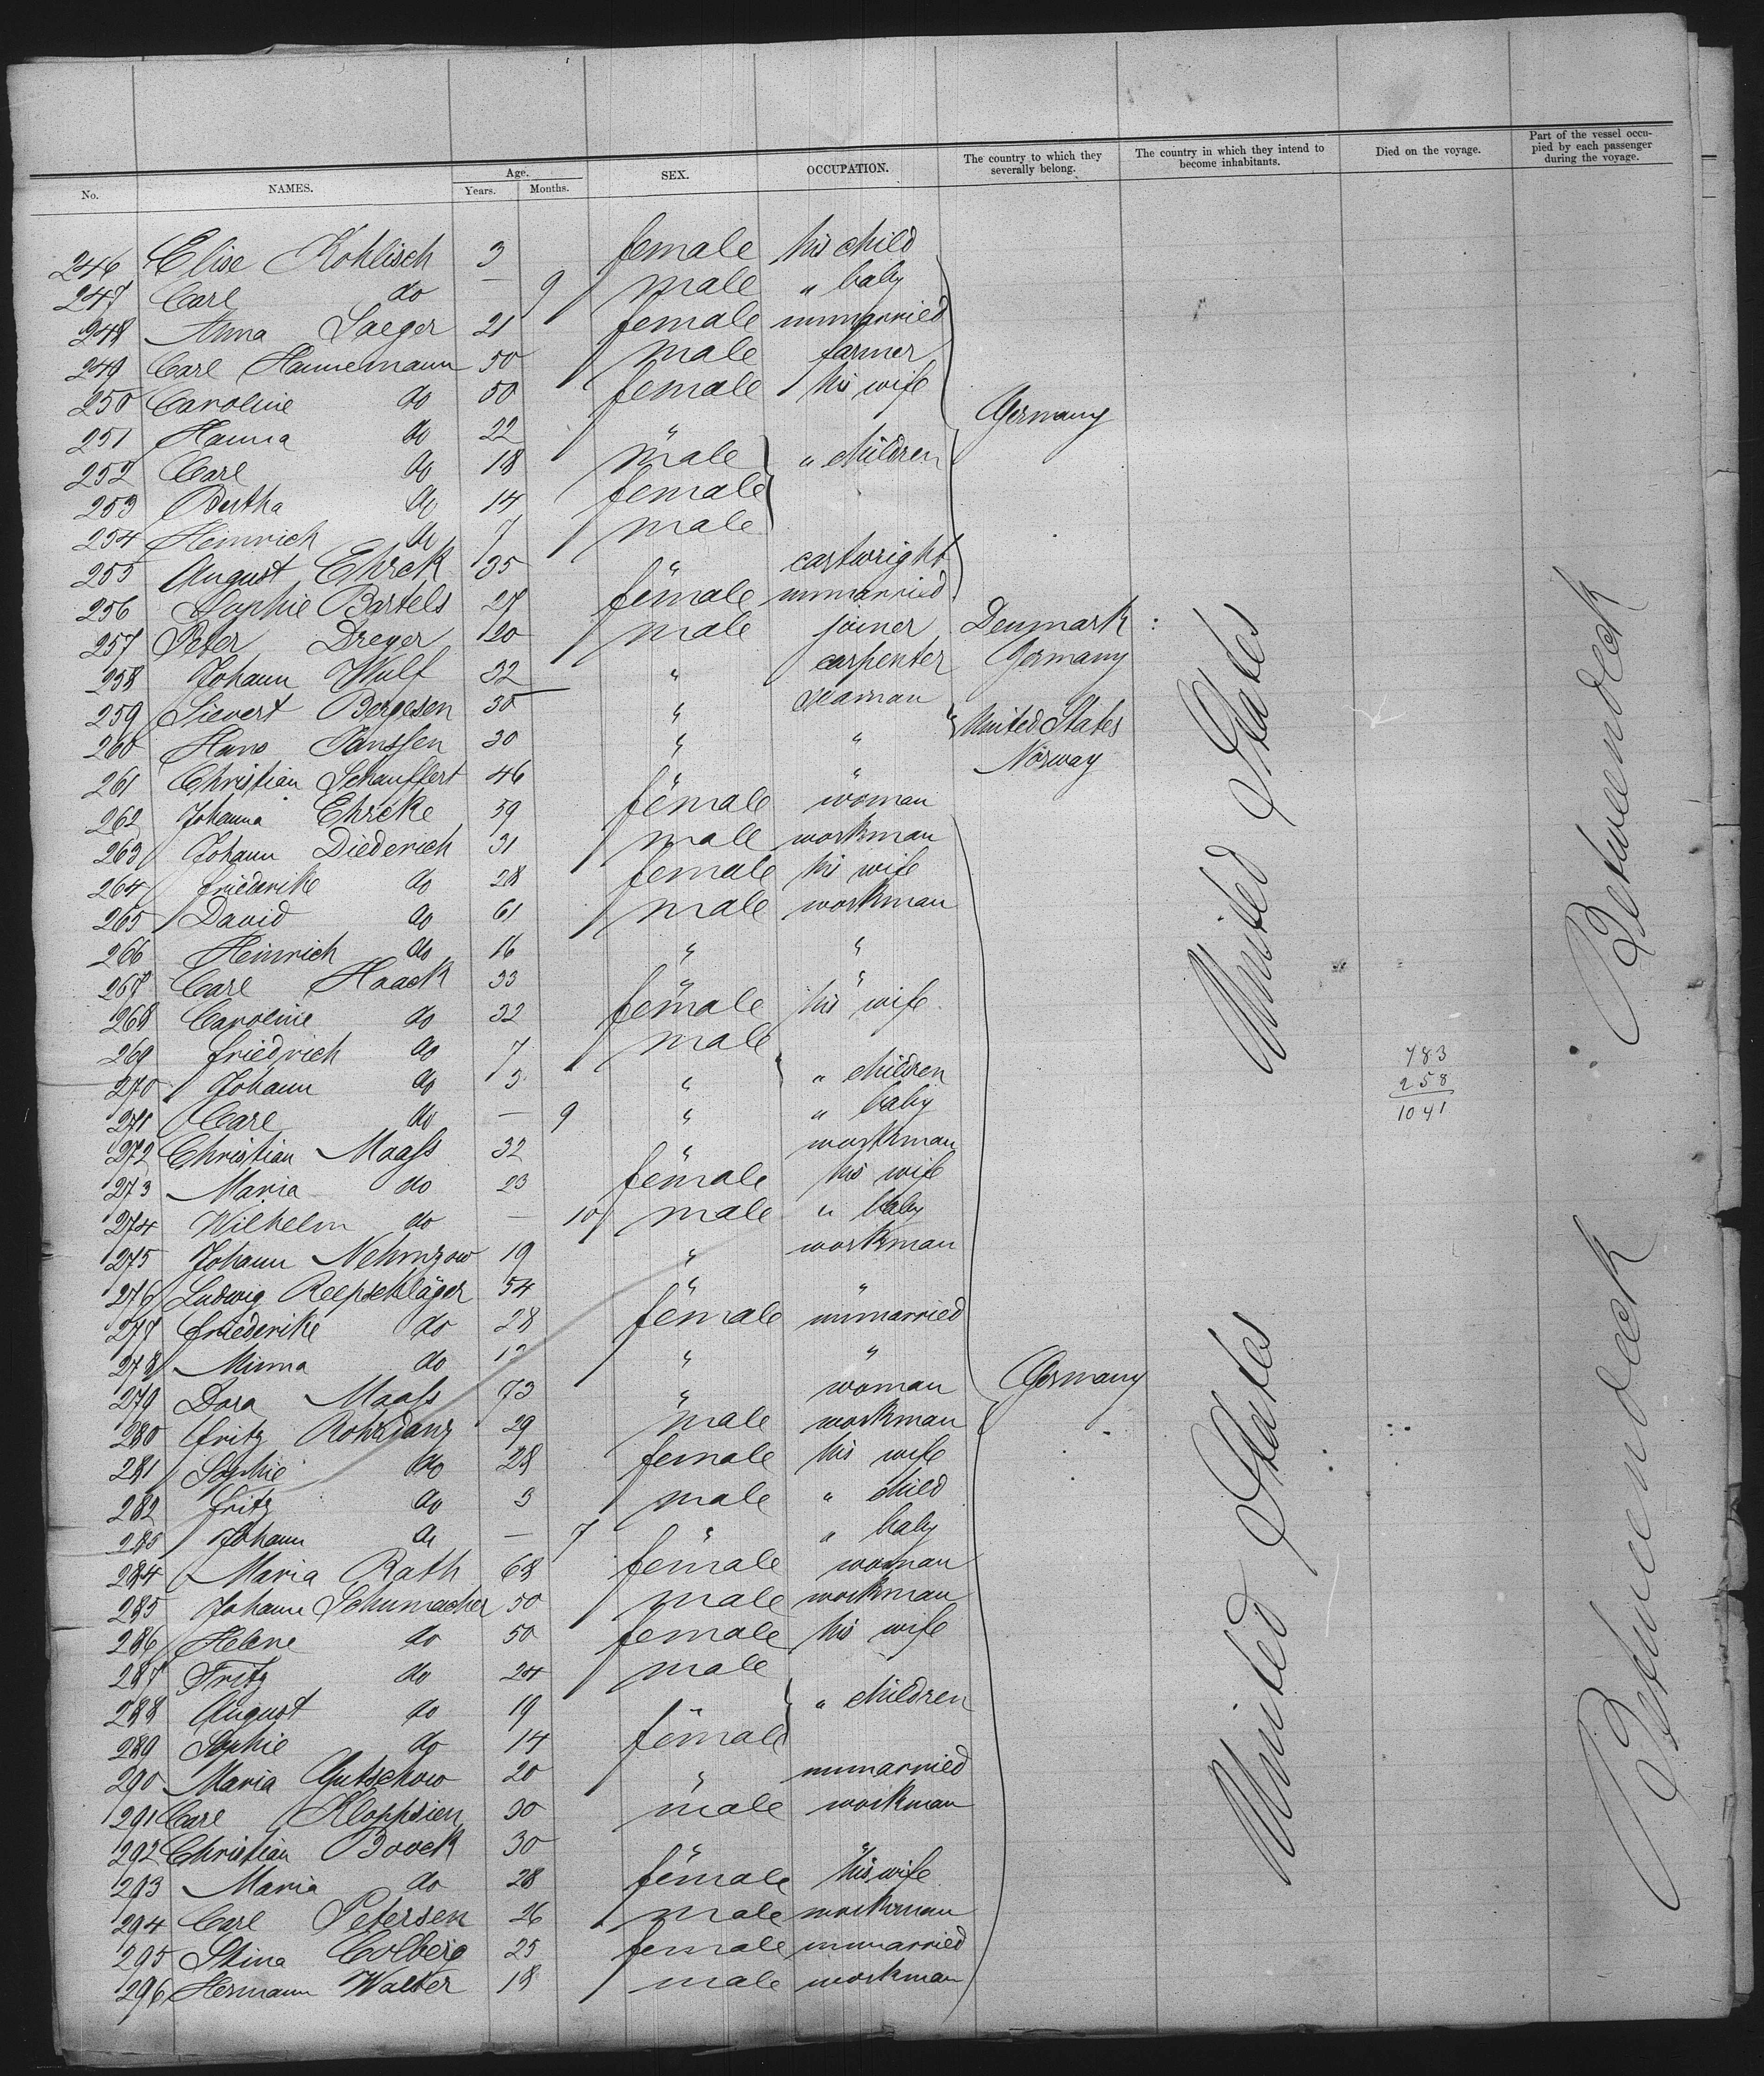 No. NAMES. Age. Years. Months. SEX. OCCUPATION. The country to which they severally belong. The country in which they intend to become inhabitants. Died on the voyage. Part of the vessel occupied by each passenger during the voyage.
246 Elise Kohlisch 3 female his child
247 Carl do — 9 male " baby
248 Anna Saeger 21 female unmarried
249 Carl Hannemann 50 male farmer
250 Caroline do 50 female his wife Germany
251 Hanna do 22 "
252 Carl do 18 male " children
253 Bertha do 14 female
254 Heinrich do 7 male
255 August Ehrck 35 " cartwright
256 Sophie Bartels 27 female unmarried
257 Peter Dreyer 20 male joiner Denmark
258 Johann Wulf 32 " carpenter Germany
259 Sievert Bergesen 30 " seaman United States
260 Hans Janssen 30 " "
261 Christian Schauffert 46 " " Norway
262 Johanna Ehrcke 59 female woman
263 Johann Diederich 31 male workman
264 Friederike do 28 female his wife
265 David do 61 male workman
266 Heinrich do 16 " "
267 Carl Haack 33 " "
268 Caroline do 32 female his wife
269 Friedrich do 7 male
270 Johann do 3 " " children
271 Carl do — 9 " " baby
272 Christian Maass 32 " workman
273 Maria do 23 female his wife
274 Wilhelm do — 10 male " baby
275 Johann Nehmzow 19 " workman
276 Ludwig Reepschläger 54 " "
277 Friederike do 28 female unmarried
278 Minna do " "
279 Dora Maass 73 " woman Germany
280 Fritz Rohrdanz 29 male workman
281 Sophie do 28 female his wife
282 Fritz do 3 male " child
283 Johann do — 7 " " baby
284 Maria Rath 68 female woman
285 Johann Schumacher 50 male workman
286 Helene do 50 female his wife
287 Fritz do 24 male
288 August do 19 " " children
289 Sophie do 14 female
290 Maria Gutschow 20 " unmarried
291 Carl Kloppsien 30 male workman
292 Christian Boock 30 " "
293 Maria do 28 female his wife
294 Carl Petersen 26 male workman
295 Stina Colberg 25 female unmarried
296 Hermann Walter 18 male workman
United States
United States
783
258
1041
Betweendeck
Betweendeck